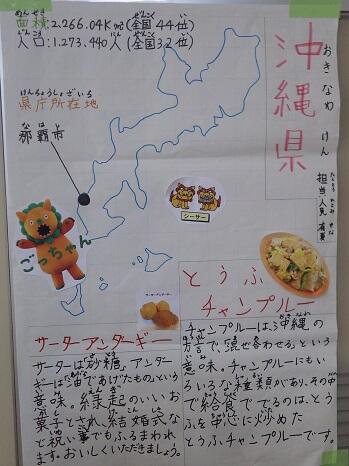 めんせき
面積:2,266.04K㎡(全国44位)
ぜんこく い
じんこう
人口:1,273,440人(全国32位)
おきなわ けん
沖縄県
けんちょうしょざいち
県庁所在地
なは し
那覇市
シーサー
ごっちゃん
とうふ
チャンプルー
サーターアンダーギー
サーターは砂糖、アンダ
ギーは油であげたもの。という
意味。縁起のいいお
菓子とされ結婚式な
ど祝い事でもふるまわれ
ます。おいしくいただきましょう。
チャンプルーは、沖縄の
方言で「混ぜ合わせる」という
意味。チャンプルーにもい
ろいろな種類があり、その中
で給食ででるのは、とう
ふを中心に炒めた
とうふチャンプルーです。